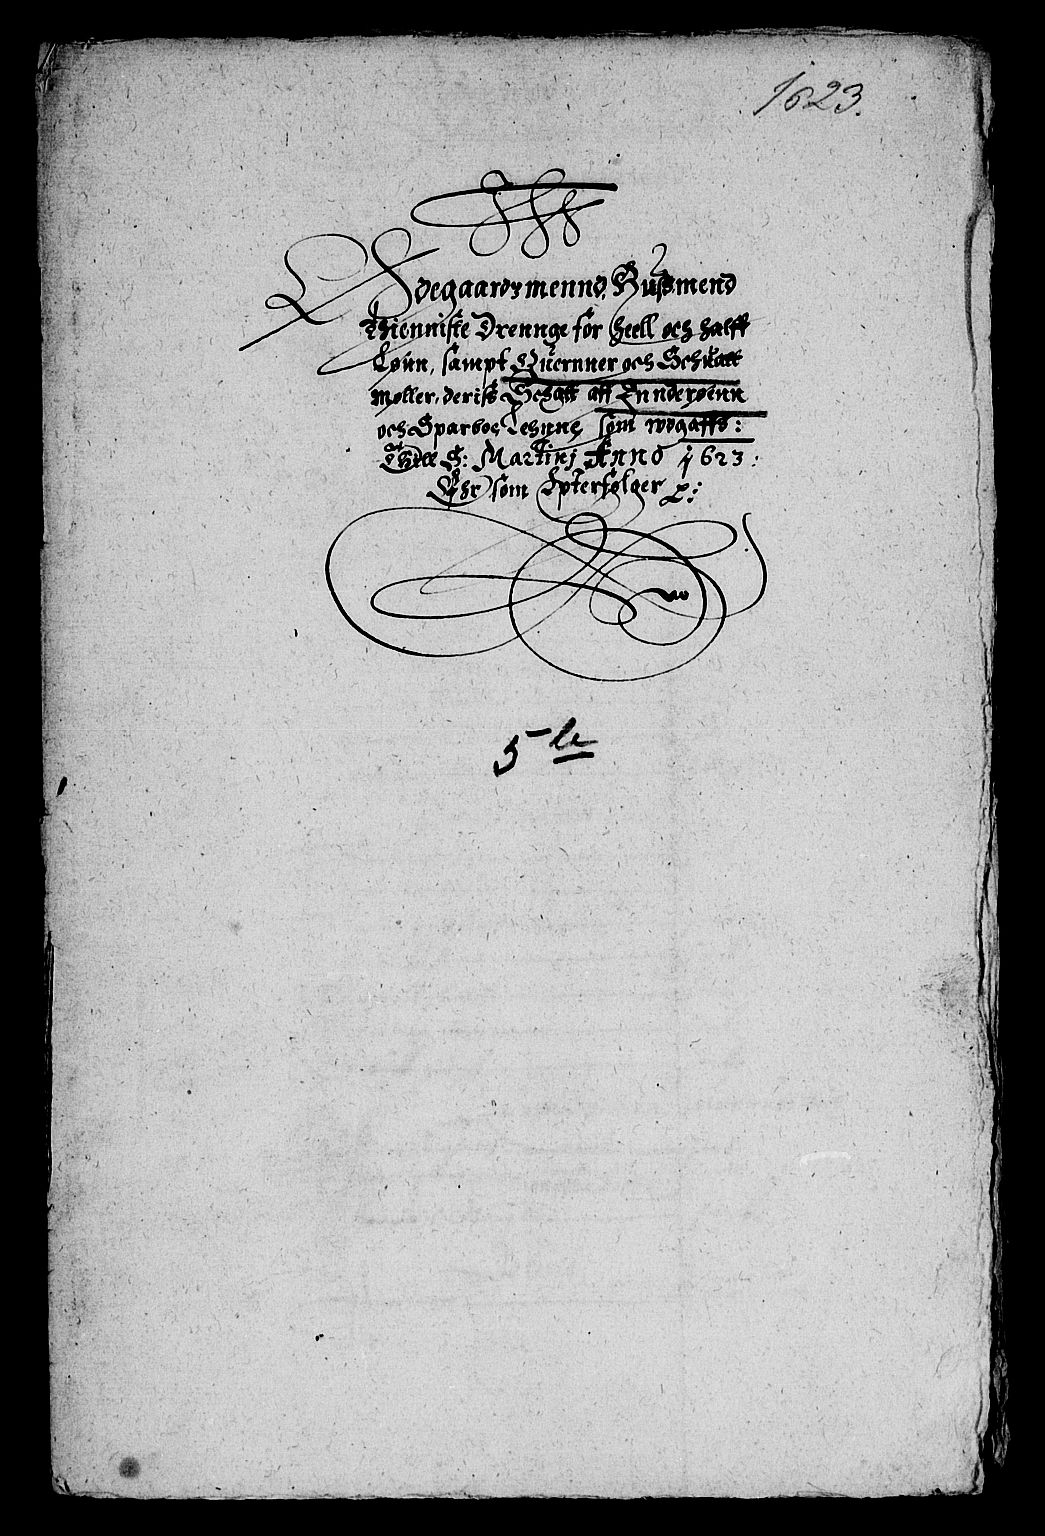 1623.
Ødegaardsmennd, Hussmend
Thienniste Drennge for heell och halff
Løun, sampt Quernner och Schuatt
Møller, deriss Schatt aff Inderøenn
och Sparboe Lehnne, som udgaffs:
Thill S: Martinj Anno 1623:
Ehr som Epterfølger